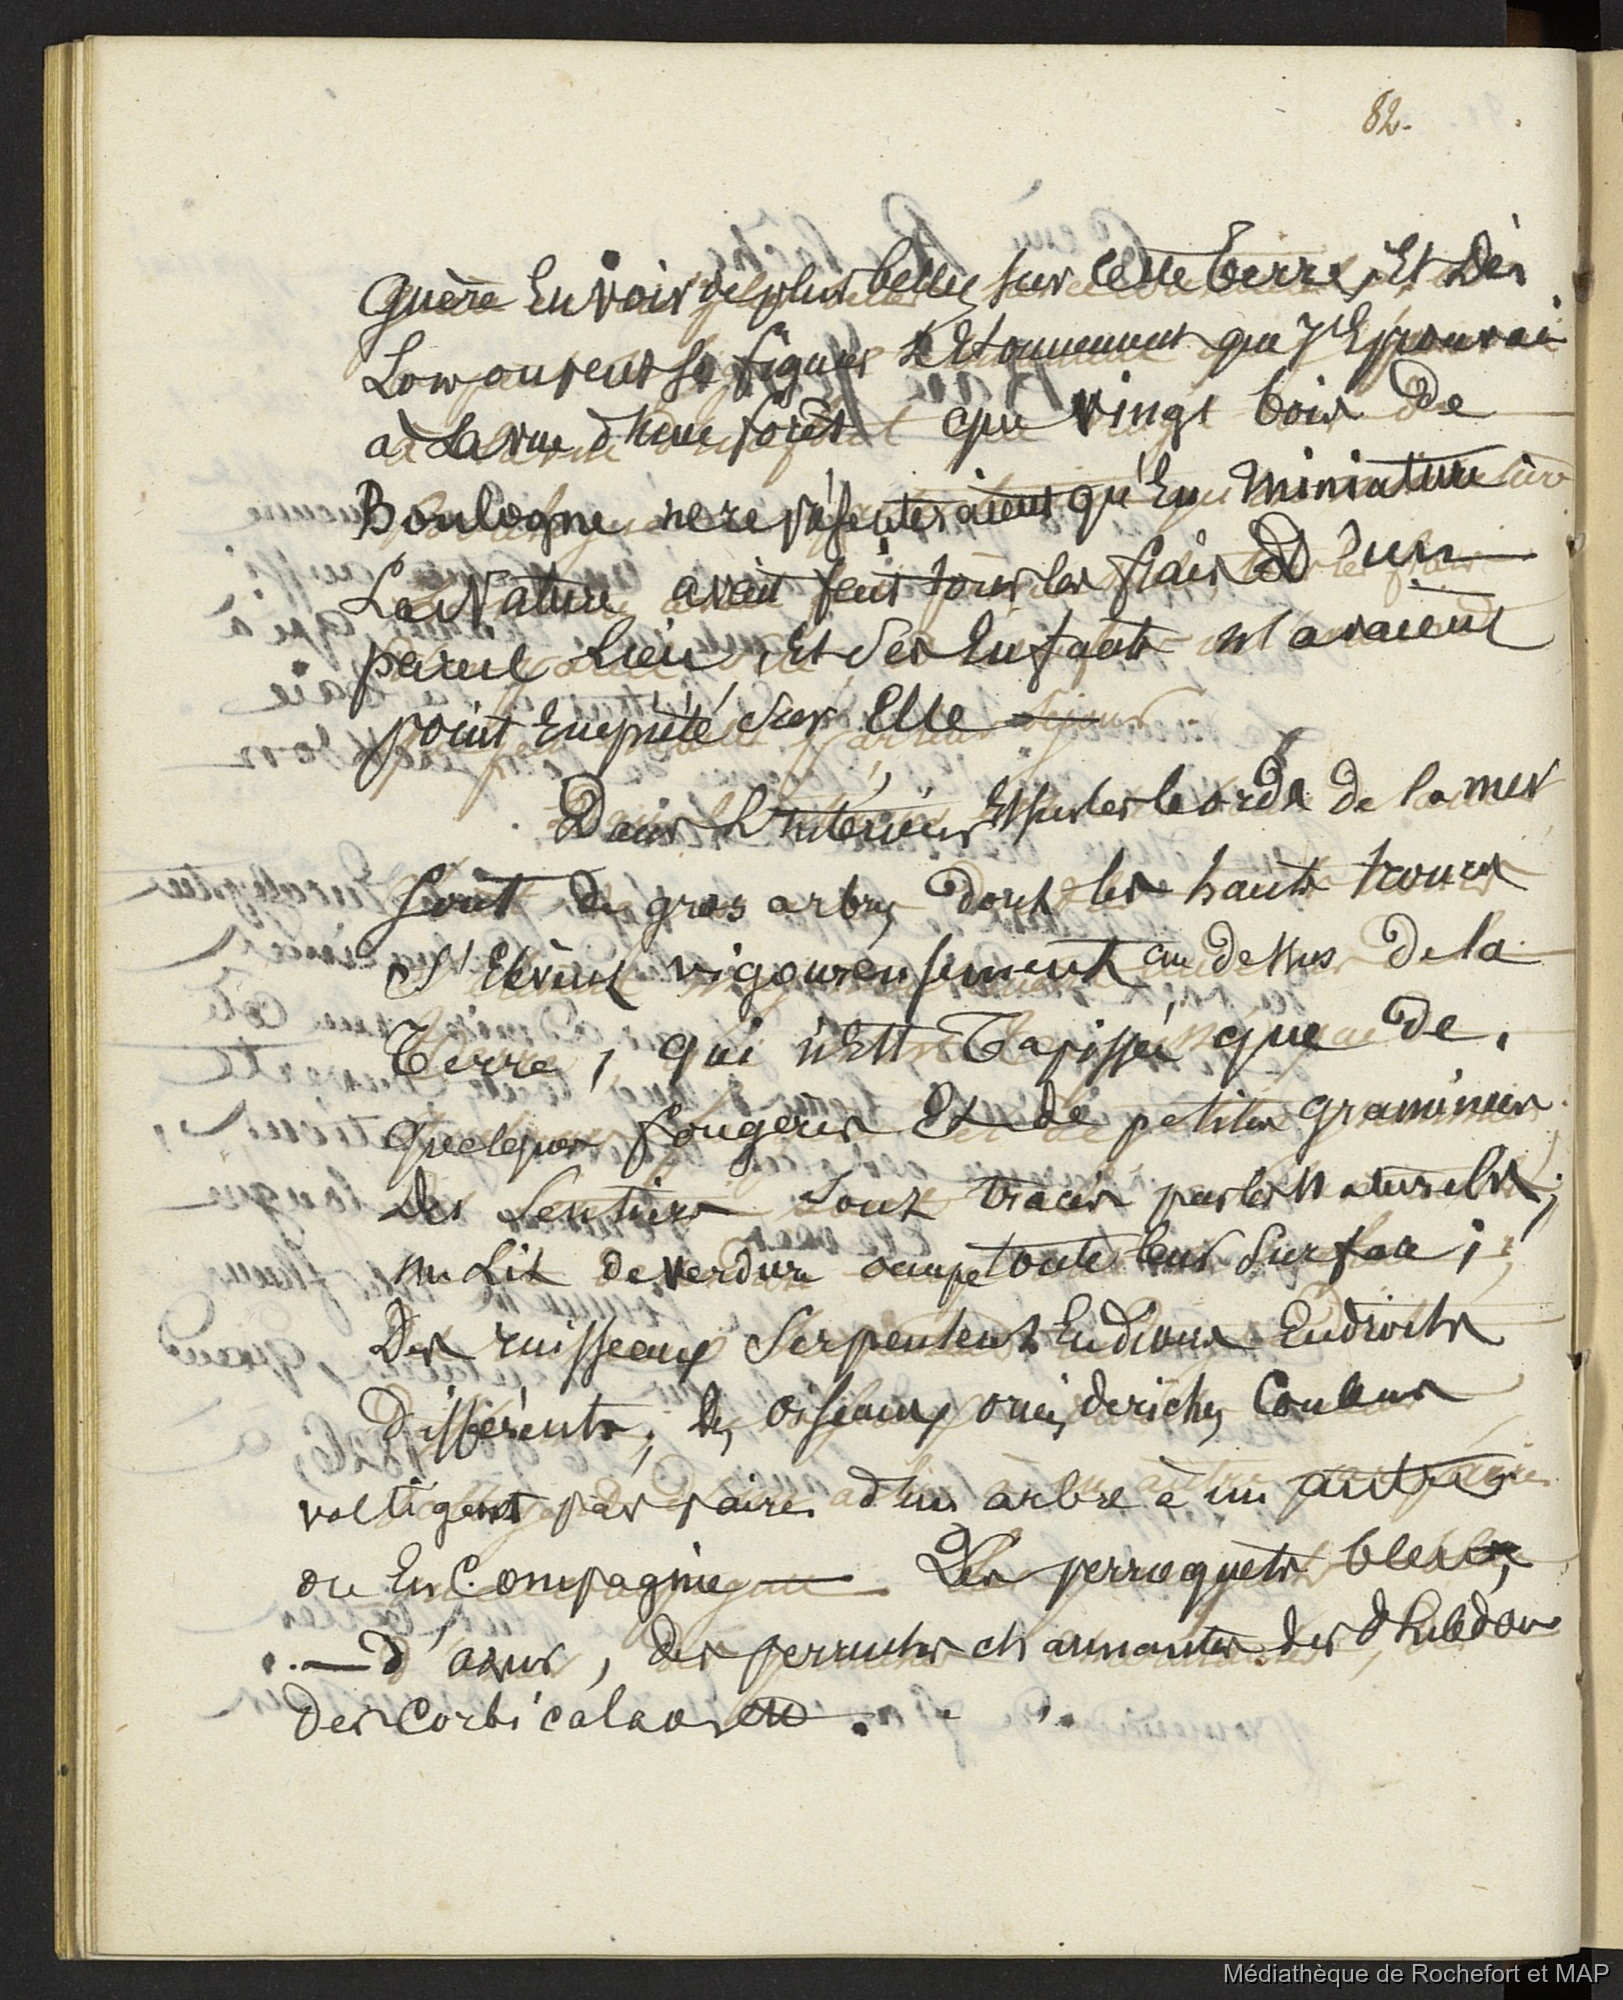 82.
Guère En voir de plus belles sur Cette terre, Et Dès
Lors on peut se figurer L'Etonnement que J'Eprouvai
à La vue d'Une forêt que vingt bois de
Boulogne ne représenteraient qu'En Miniature
La Nature avait fait tous les frais D'un
pareil Lieu, Et Ses Enfants n'avaient
point Empiété Sur Elle
Dans L'Intérieur Et sur les bords de la mer
Sont de gros arbres dont les hauts troncs
S'Elèvent vigoureusement au dessus De la
Terre, qui n'Est Tapissée que de
quelques fougères Et de petites graminées
Des Sentiers Sont tracés par les Naturels;
un Lit de verdure occupe toute leur Surface;
Des ruisseaux Serpentent En Divers Endroits
Différents; des oiseaux ornés de riches Couleurs
voltigent par paires d'Un arbre à un autre
ou En Compagnie Des perroquets bleus,
d'azur, des perruches charmantes des
Des Corbicalaos
Médiathèque de Rochefort et MAP